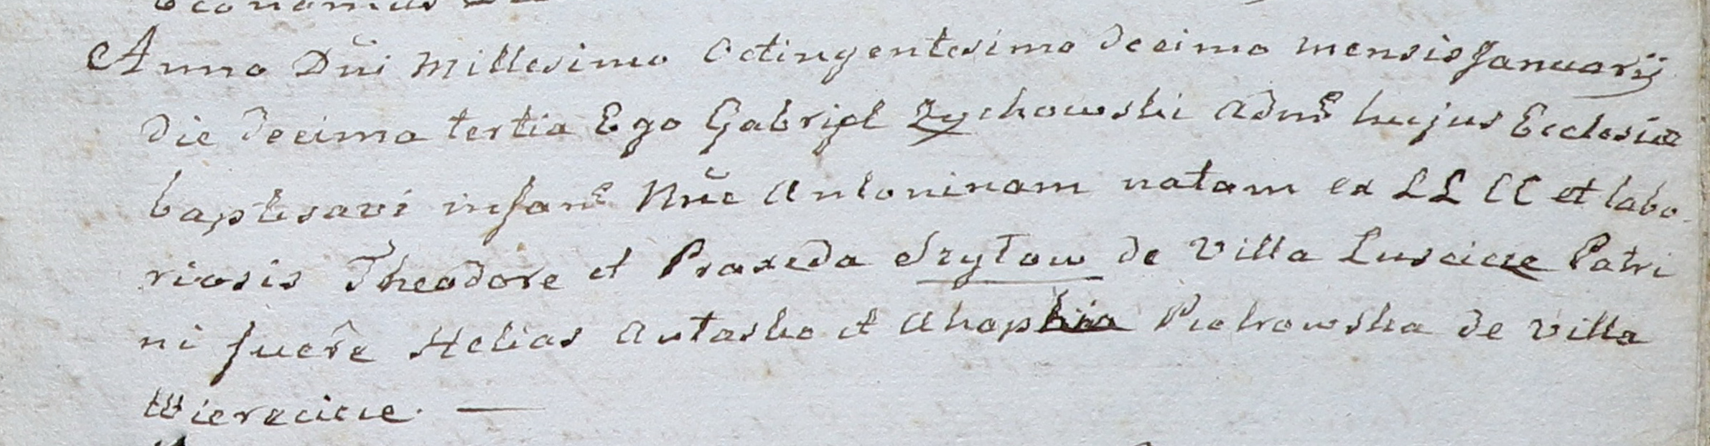 Anno Dñi Millesimo Octingentesimo decimo mensis Januarij
die decima tertia Ego Gabriel Zychowski Admr hujus Ecclesiæ
baptisavi infane Nñe Antoninam natam ex LL CC et labo-
riosis Theodore et Praxeda Szytow de Villa Luscicze Patri
ni fuere Helias Autasko et Ahaphia Piotrowska de villa
Wierzcicie. —